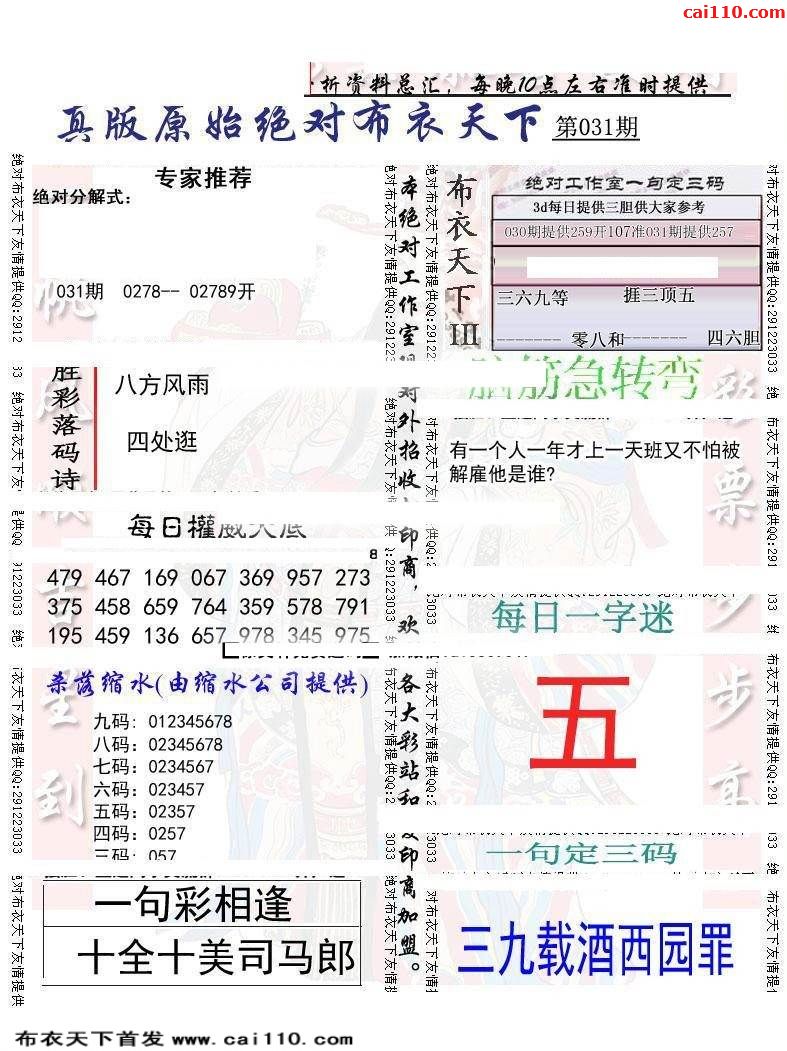 cai110.com
析资料总汇，每晚10点左右准时提供
真版原始绝对布衣天下 第031期
专家推荐
绝对分解式：
031期 0278-- 02789开
胜彩落码诗
八方风雨
四处逛
每日權威大底
8
479 467 169 067 369 957 273
375 458 659 764 359 578 791
195 459 136 657 978 345 975
杀落缩水(由缩水公司提供)
九码：012345678
八码：02345678
七码：0234567
六码：023457
五码：02357
四码：0257
三码：057
一句彩相逢
十全十美司马郎
本绝对工作室
对外招收
印商，欢
各大彩站和
印商加盟。
布衣天下III
绝对工作室一句定三码
3d每日提供三胆供大家参考
030期提供259开107准031期提供257
三六九等 捱三顶五
-------- 零八和-------- 四六胆
脑筋急转弯
有一个人一年才上一天班又不怕被
解雇他是谁?
每日一字迷
五
一句定三码
三九载酒西园罪
绝对布衣天下友情提供QQ:291223033
彩票
步步高
布衣天下首发 www.cai110.com